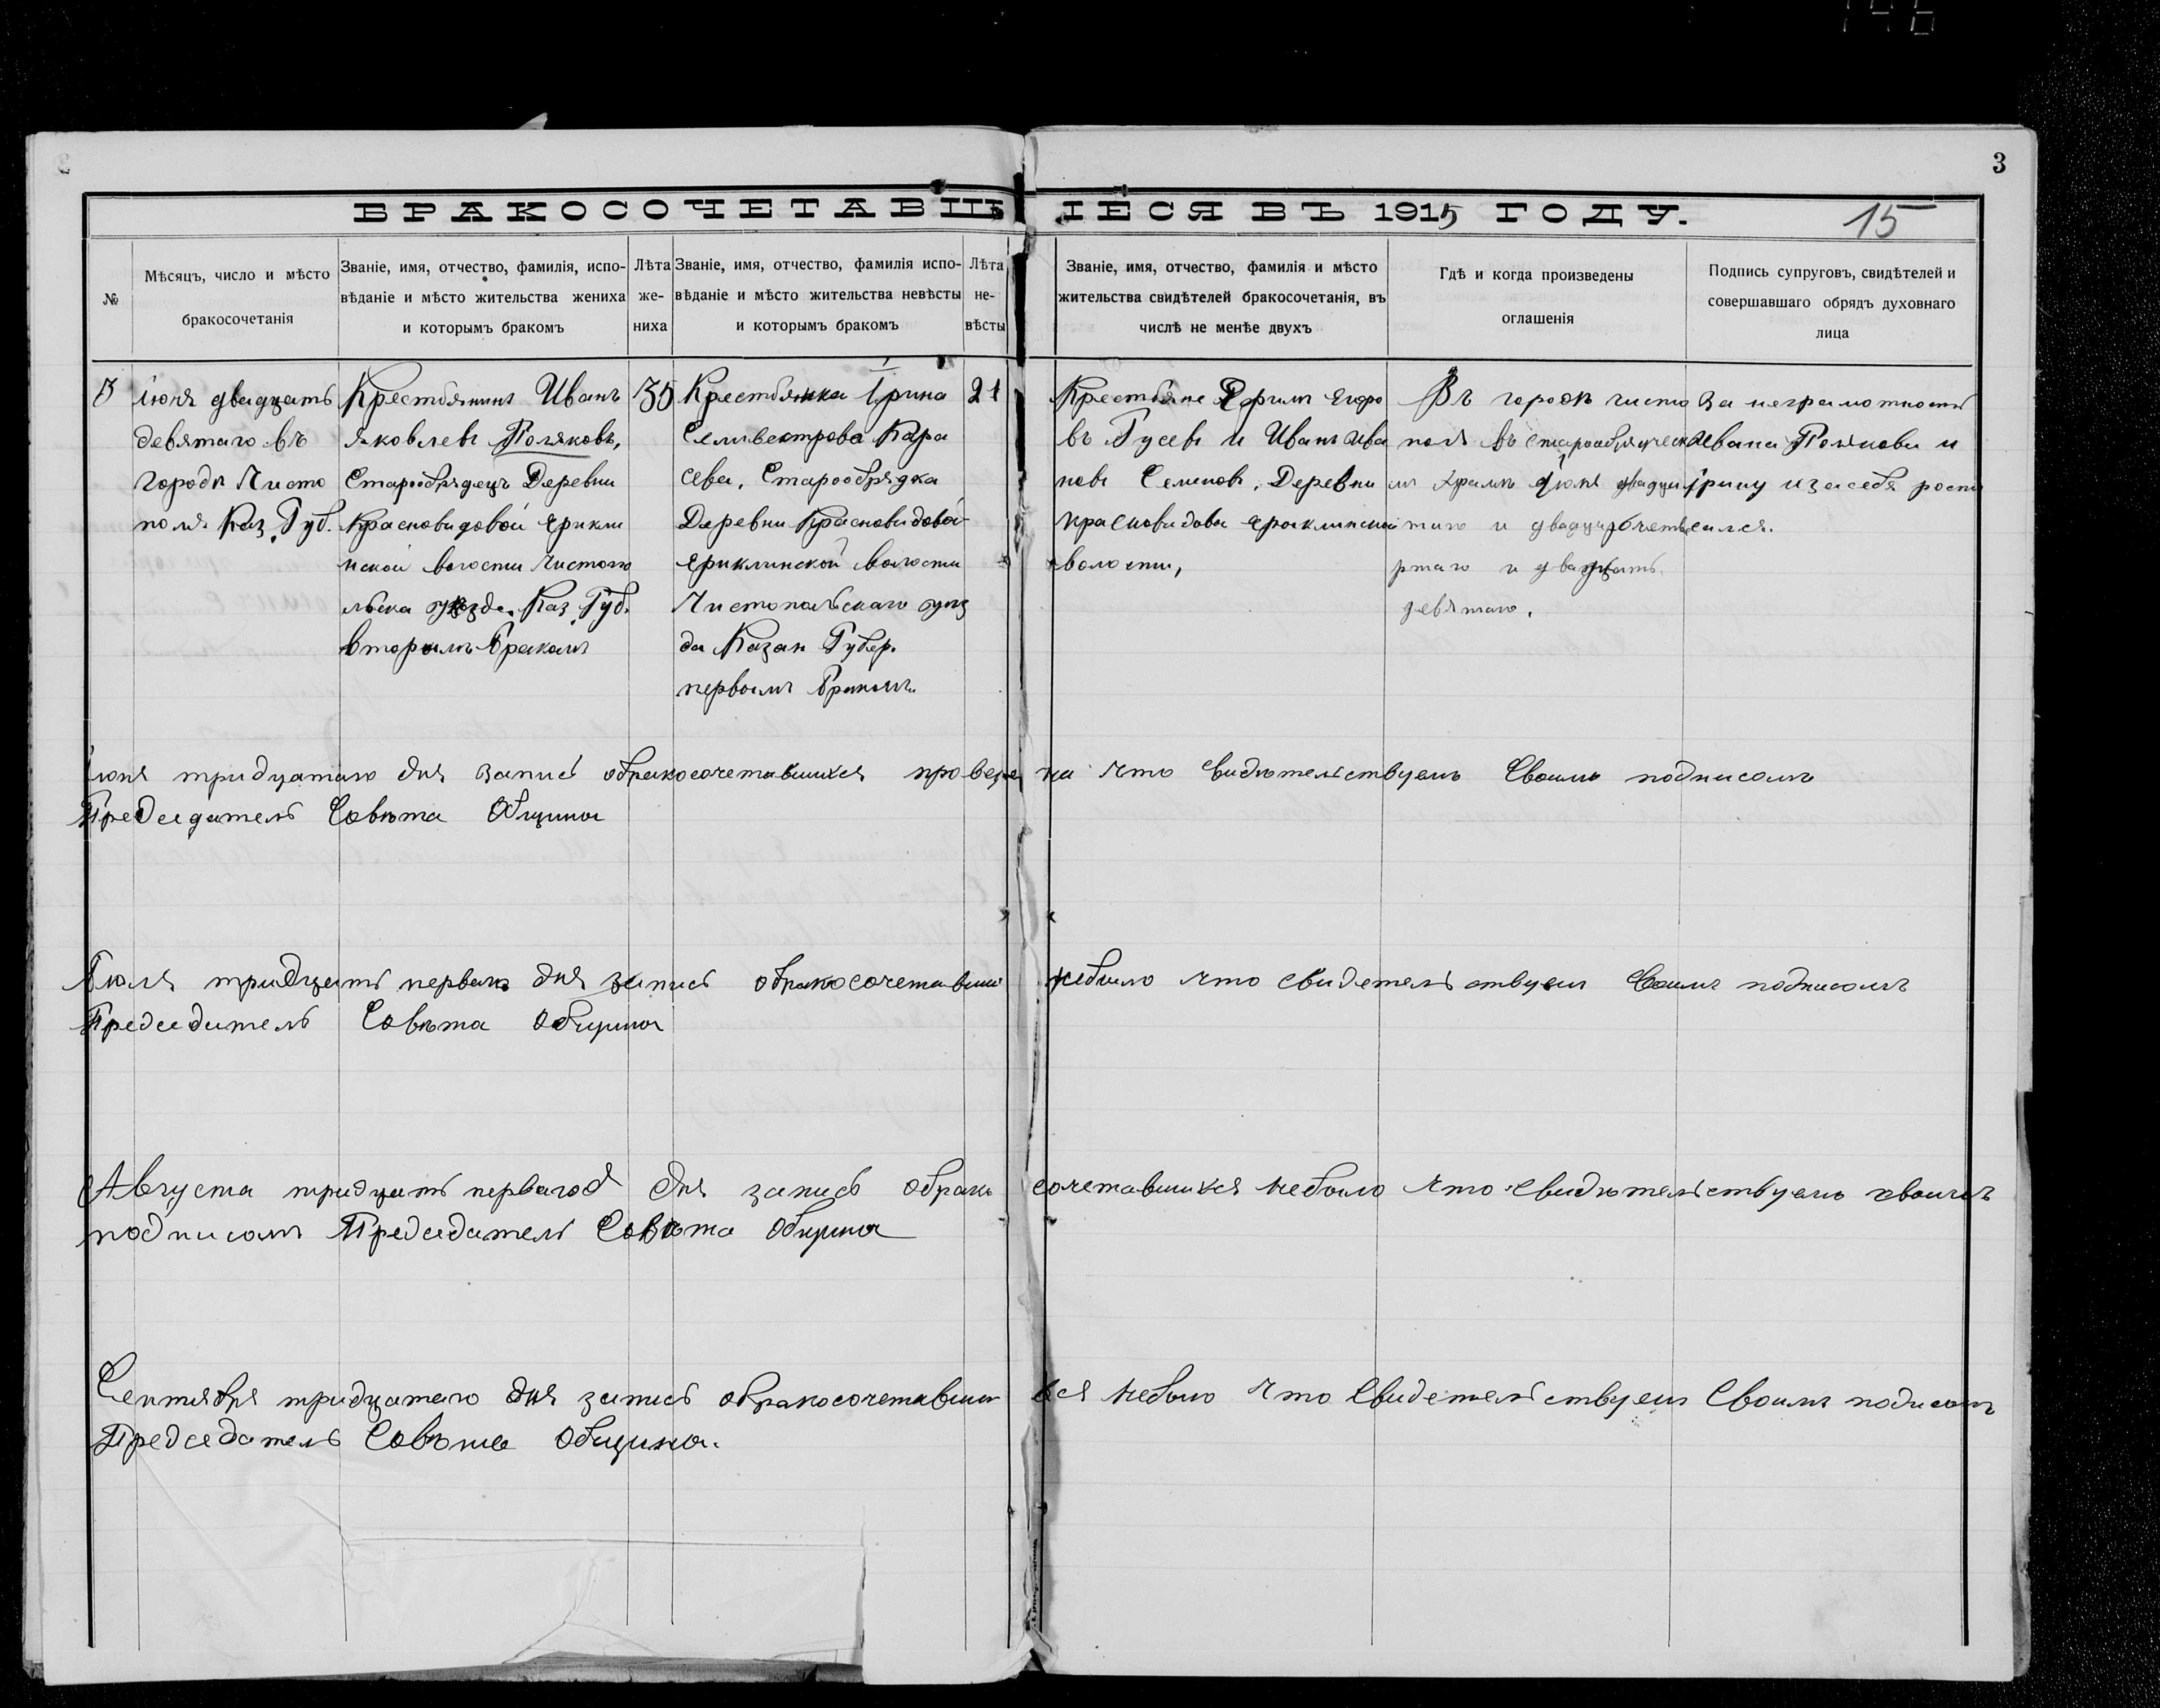 3
БРАКОСОЧЕТАВШІЕСЯ ВЪ 1915 ГОДУ.
15
№
Мѣсяцъ, число и мѣсто
бракосочетанія
Званіе, имя, отчество, фамилія, испо-
вѣданіе и мѣсто жительства жениха
и которымъ бракомъ
Лѣта
же-
ниха
Званіе, имя, отчество, фамилія испо-
вѣданіе и мѣсто жительства невѣсты
и которымъ бракомъ
Лѣта
не-
вѣсты
Званіе, имя, отчество, фамилія и мѣсто
жительства свидѣтелей бракосочетанія, въ
числѣ не менѣе двухъ
Гдѣ и когда произведены
оглашенія
Подпись супруговъ, свидѣтелей и
совершавшаго обрядъ духовнаго
лица
іюня двадцать
девятаго въ
городѣ Чисто
поля Каз. Губ.
Крестьянинъ Иванъ
Яковлевъ Поляковъ,
Старообрядецъ Деревни
Красновидовой Ерикли
нской волости Чистопо
льска уѣзда. Каз. Губ.
вторымъ бракамъ
35
Крестьянка Ірина
Селивестрова Кара
сева, Старообрядка
Деревни Красновидовой
Ериклинской волости
Чистопольскаго уѣз
да Казан Губер.
первымъ бракомъ.
21
Крестьяне Ефримъ Егоро
въ Гусевъ и Иванъ Ива
новъ Семеновъ, Деревни
Красновидова Ераклинской
волости,
Въ городѣ чисто
поля въ старообрядческо
мъ храмѣ іюня двадца
таго и двадцать четве
ртаго и двадцать
девятаго.
За неграмотность
Ивана Полякова и
Ірину и за себя роспи
сался.
іюня тридцатаго дня запись обракосочетавшихся проверена что свидѣтельствуемъ Своимъ подписомъ
Председатель Совѣта Общины
Іюля тридцать перваго дня запись обракосочетавши небыло что свидетельствуем Своимъ подписомъ
Председатель Совѣта Общины
Августа тридцать перваго дня запись обрако сочетавшихся небыло что свидѣтельствуемъ своимъ
подписомъ Председатель Совѣта Общины
Сентября тридцатаго дня запись обракосочетавши хся небыло что Свидетельствуем Своимъ подписомъ
Председатель Совѣта Общины.